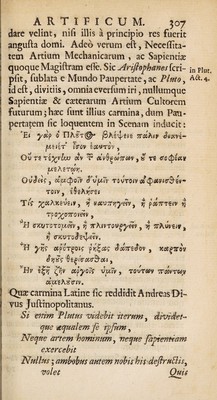 ARTIFICUM. 307
dare velint, nisi illis à principio res fuerit
angusta domi. Adeò verum est, Necessita-
tem Artium Mechanicarum, ac Sapientiæ
quoque Magistram esse. Sic Aristophanes scri-
psit, sublata e Mundo Paupertate, ac Pluto,
in Plut.
Act. 4.
id est, divitiis, omnia eversum iri, nullumque
Sapientiæ & cæterarum Artium Cultorem
futurum; hæc sunt illius carmina, dum Pau-
pertatem sic loquentem in Scenam inducit:
Εἰ γὰρ ὁ Πλοῦτος βλέψειε πάλιν
Οὔτε τέχνην ἂν ἀνθρώπων, ἢ τε σοφίαν
Οὐδεὶς, ἀμφοῖν δ' ὑμῖν τούτοιν
ἐθελήσει
Τίς χαλκεύειν, ἢ ναυπηγεῖν, ἢ ῥάπτειν ἢ
τροχοποιεῖν
Ἢ σκυτοτομεῖν, ἢ πλινθουργεῖν, ἢ πλύνειν,
ἢ σκυτοδεψεῖν,
Ἢ γῆς ἀρότροις ῥήξας δάπεδον, καρπὸν
δηοῦς θερίσασθαι,
Ἢν ἐξῇ ζῆν ἀργοῖς ὑμῖν, τούτων πάντων
ἀμελοῦσιν.
Quæ carmina Latine sic reddidit Andreas Di-
vus Justinopolitanus.
Si enim Plutus videbit iterum, dividet-
que æqualem se ipsum,
Neque artem hominum, neque sapientiam
exercebit
Nullus; ambobus autem nobis his destructis,
volet
Quis